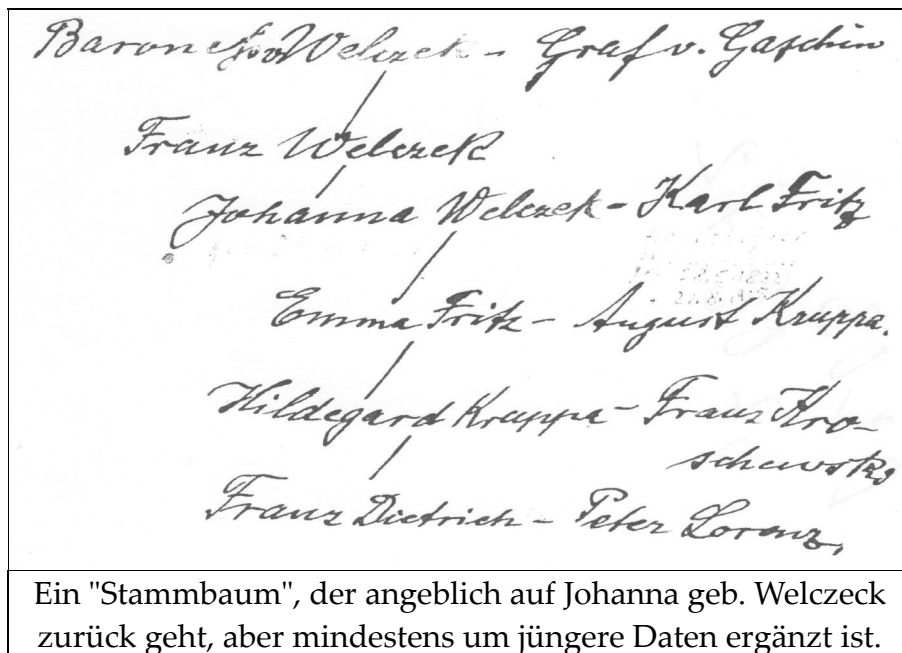 Baronesse v Welczek - Graf v. Gaschin
Franz Welczek
Johanna Welczek - Karl Fritz
Emma Fritz - August Kruppa.
Hildegard Kruppa - Franz Kro-
schewsky
Franz Dietrich - Peter Lorenz,
Ein "Stammbaum", der angeblich auf Johanna geb. Welczeck
zurück geht, aber mindestens um jüngere Daten ergänzt ist.